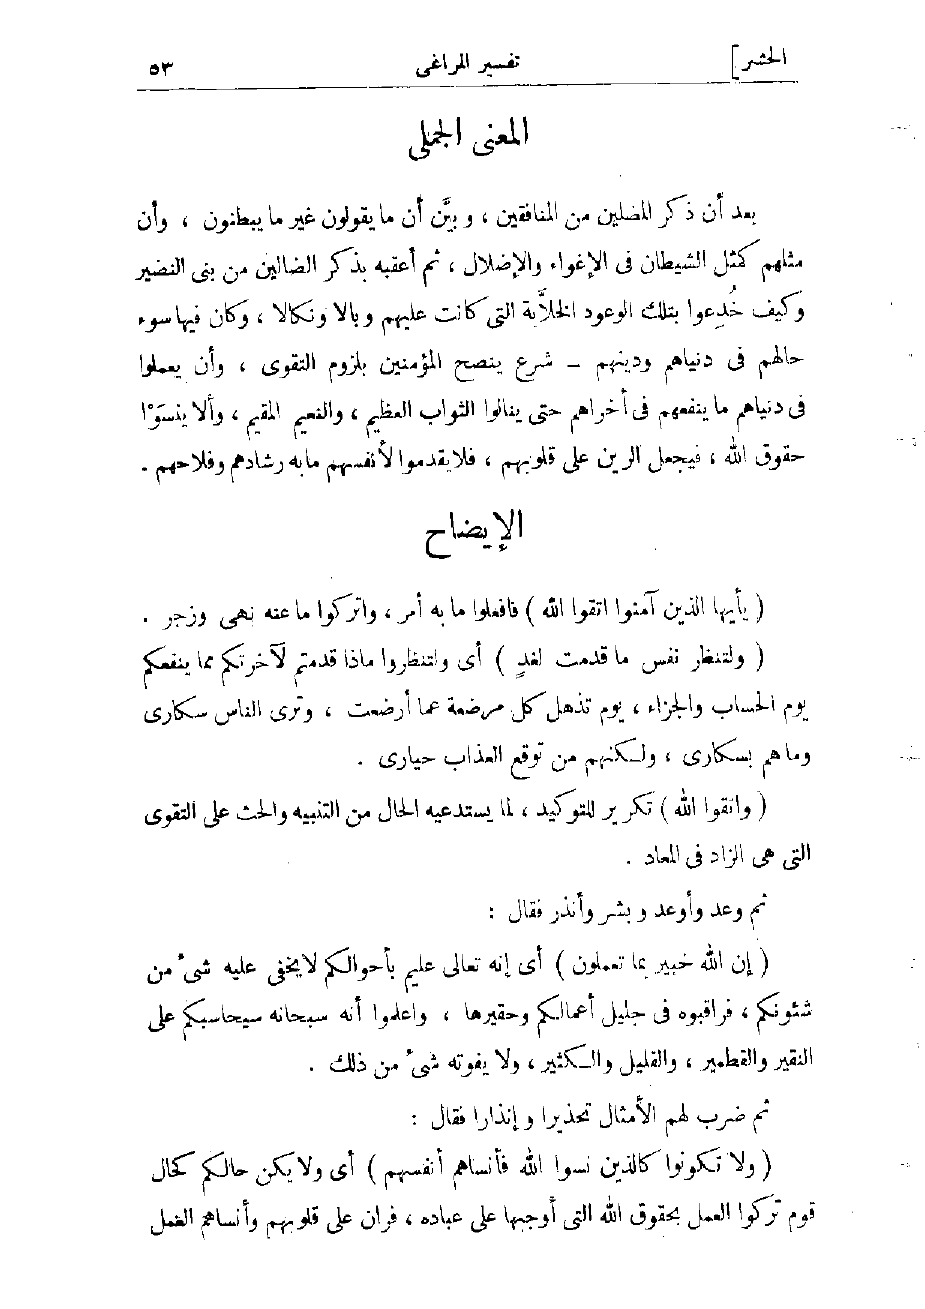 الحشر]
تفسير المراغى
٥٣
المعنى الجملى
بعد أن ذكر المضلين من المنافقين ، وبيَّن أن ما يقولون غير ما يبطنون ، وأن
مثلهم كمثل الشيطان فى الإغواء والإضلال ، ثم أعقبه بذكر الضالين من بنى النضير
وكيف خُدِعوا بتلك الوعود الخلَّابة التى كانت عليهم وبالا ونكالا ، وكان فيها سوء
حالهم فى دنياهم ودينهم – شرع ينصح المؤمنين بلزوم التقوى ، وأن يعملوا
فى دنياهم ما ينفعهم فى أخراهم حتى ينالوا الثواب العظيم ، والنعيم المقيم ، وألا ينسَوْا
حقوق الله ، فيجعل الرين على قلوبهم ، فلا يقدموا لأنفسهم ما به رشادهم وفلاحهم .
الإيضاح
( يأيها الذين آمنوا اتقوا الله ) فافعلوا ما به أمر ، واتركوا ما عنه نهى وزجر .
( ولتنظر نفس ما قدمت لغدٍ ) أى ولتنظروا ماذا قدمتم لآخرتكم مما ينفعكم
يوم الحساب والجزاء ، يوم تذهل كل مرضعة عما أرضعت ، وترى الناس سكارى
وما هم بسكارى ، ولكنهم من توقع العذاب حيارى .
( واتقوا الله ) تكرير للتوكيد ، لما يستدعيه الحال من التنبيه والحث على التقوى
التى هى الزاد فى المعاد .
ثم وعد وأوعد وبشر وأنذر فقال :
( إن الله خبير بما تعملون ) أى إنه تعالى عليم بأحوالكم لا يخفى عليه شىء من
شئونكم ، فراقبوه فى جليل أعمالكم وحقيرها ، واعلموا أنه سبحانه سيحاسبكم على
النقير والقطمير ، والقليل والكثير ، ولا يفوته شىء من ذلك .
ثم ضرب لهم الأمثال تحذيرا وإنذارا فقال :
( ولا تكونوا كالذين نسوا الله فأنساهم أنفسهم ) أى ولا يكن حالكم كحال
قوم تركوا العمل بحقوق الله التى أوجبها على عباده ، فران على قلوبهم وأنساهم العمل